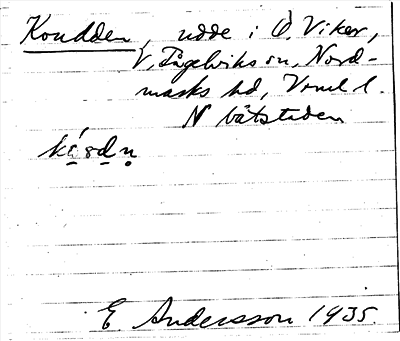 Koudden, udde i Ö. Viker,
V. Fågelviks sn, Nord-
marks hd, Vrml l.
N båtstaden
E Andersson 1935.